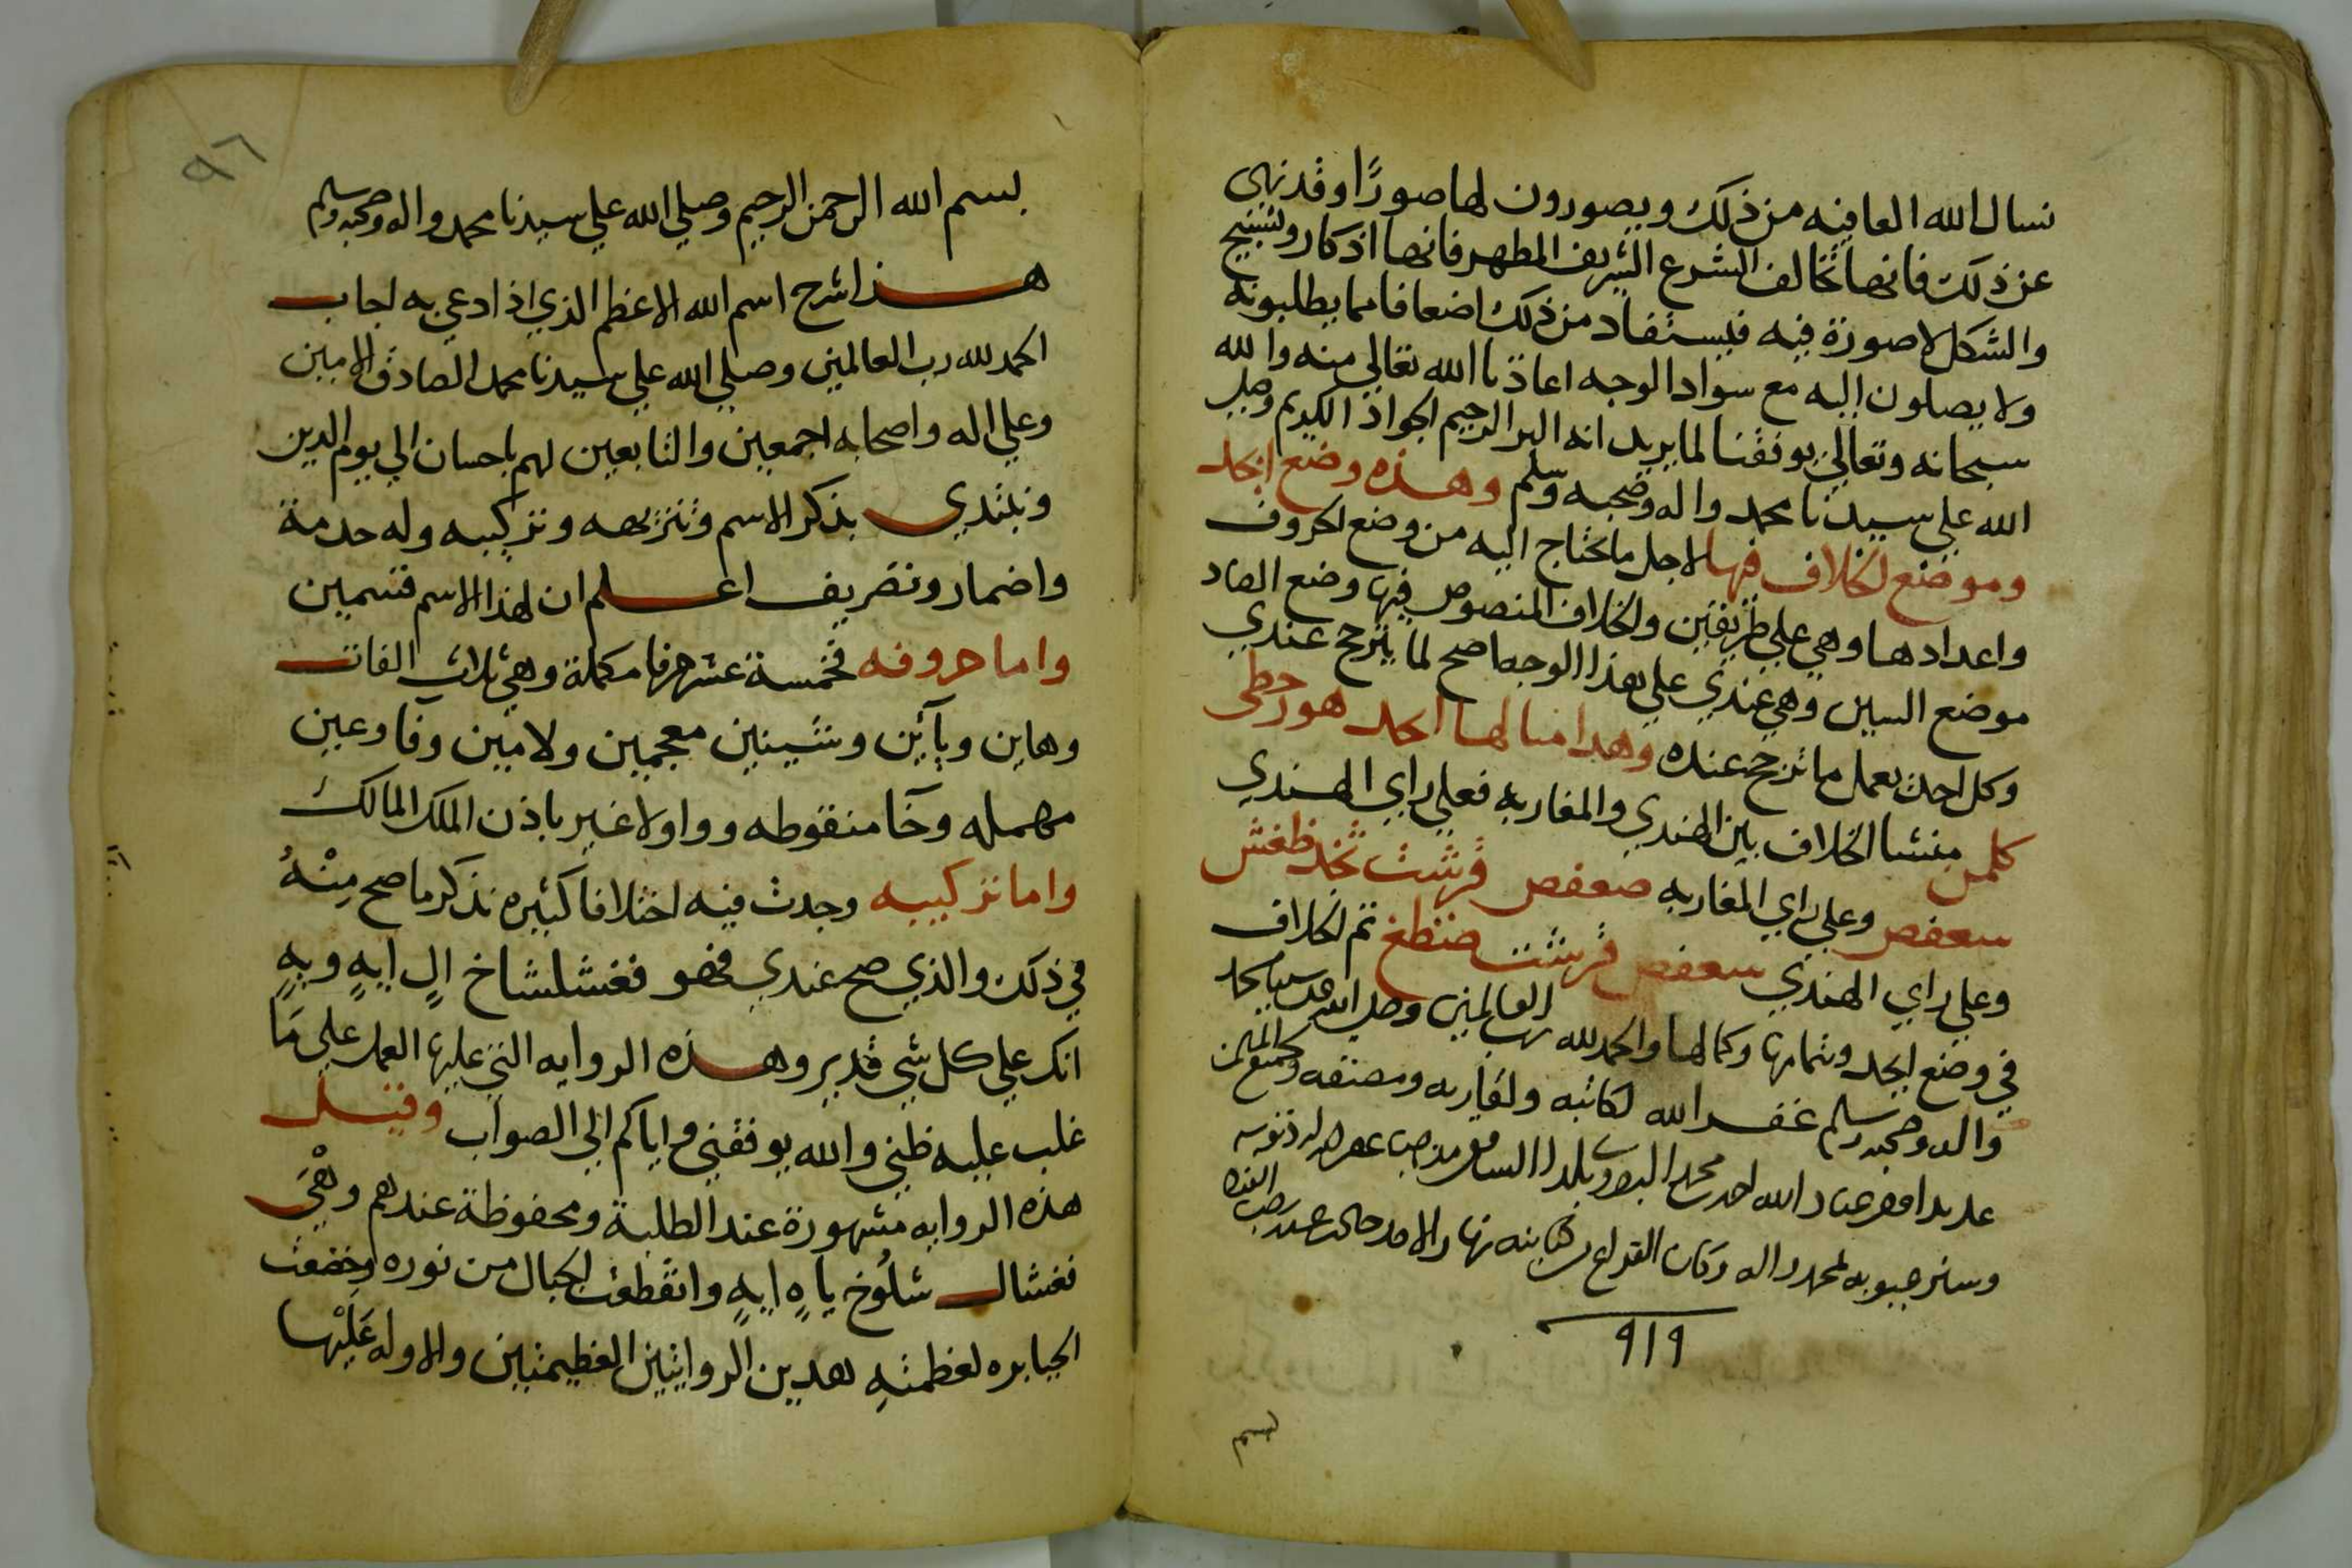 نسال الله العافيه من ذلك ويصورون لها صورًا وقد نهى
عن ذلك فانها تخالف الشرع الشريف المطهر فانها اذكار وتسبيح
والشكل لا صورة فيه فيستفاد من ذلك اضعافا مما يطلبونه
ولا يصلون اليه مع سواد الوجه اعاذنا الله تعالي منه والله
سبحانه وتعالي يوفقنا لما يريد انه البر الرحيم الجواد الكريم وصلي
الله علي سيدنا محمد واله وصحبه وسلم وهذه وضع ابجد
وموضع الخلاف فيها لاجل ما يحتاج اليه من وضع الحروف
واعدادها وهي علي طريقين والخلاف المنصوص فيها وضع الصاد
موضع السين وهي عندي علي هذا الوجه اصح لما يترجح عندي
وكل احد يعمل ما ترجح عنده وهدا مثالها ابجد هوز حطي
كلمن منشا الخلاف بين الهندي والمغاربه فعلي راي الهندي
سعفص وعلي راي المغاربه صعفض قرشت ثخذ ظغش
وعلي راي الهندي سعفص قرشت ضظغ تم الخلاف
في وضع ابجد وتمامها وكمالها والحمد لله رب العالمين وصلي الله علي سيدنا محمد
واله وصحبه وسلم غفر الله لكاتبه ولقاريه ومصنفه ولجميع المسلمين
عباد الله احمد محمد بلدا مذهبا غفر الله له ذنوبه
وستر عيوبه بمحمد واله وكان الفراغ من كتابته نهار الاحد
٩١٩
بسم
٩٦
بسم الله الرحمن الرحيم وصلي الله علي سيدنا محمد واله وصحبه وسلم
هذا شرح اسم الله الاعظم الذي اذا دعي به اجاب
الحمد لله رب العالمين وصلي الله علي سيدنا محمد الصادق الامين
وعلي اله واصحابه اجمعين والتابعين لهم باحسان الي يوم الدين
ونبتدي بذكر الاسم وتنزيهه وتركيبه وله خدمة
واضمار وتصريف اعلم ان لهذا الاسم قسمين
واما حروفه فخمسة عشر حرفا مكملة وهي ثلاث الفات
وهاين ويآئين وشينين معجمين ولامين وفا وعين
مهمله وخآ منقوطه وواو لا غير باذن الملك المالك
واما تركيبه وجدت فيه اختلافا كثيره نذكر ما صح مِنْهُ
في ذلك والذي صح عندي فهو فغشلشاخ الٍ ايهٍ وبهٍ
انك علي كل شي قدير وهذه الروايه التي عليها العمل علي مَا
غلب عليه ظني والله يوفقني واياكم الي الصواب وقيل
هذه الروايه مشهورة عند الطلبة ومحفوظة عندهم وهْيَ
فغشال شلُوخ ياهٍ ايهٍ وانقطعت الجبال من نوره وخضعت
الجبابره لعظمتهِ بهدين الروايتين العظيمتين والاوله عَلَيْها